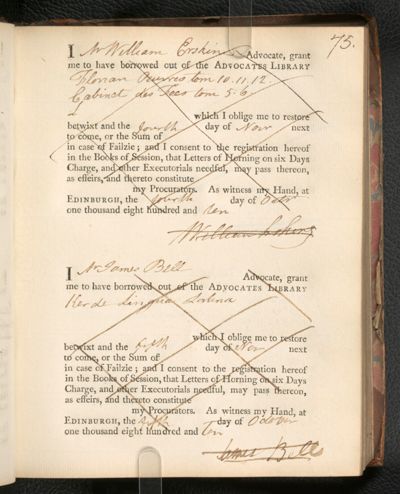 75.
I Mr William Erskine Advocate, grant
me to have borrowed out of the ADVOCATES LIBRARY
Florian Œuvres tom 10. 11. 12
Cabinet des Fees tom 5. 6
which I oblige me to restore
betwixt and the fourth day of Nov next
to come, or the Sum of
in case of Failzie; and I consent to the registration hereof
in the Books of Session, that Letters of Horning on six Days
Charge, and other Executorials needful, may pass thereon,
as effeirs, and thereto constitute
my Procurators. As witness my Hand, at
EDINBURGH, the fourth day of Octr
one thousand eight hundred and ten
William Erskine
I Mr James Bell Advocate, grant
me to have borrowed out of the ADVOCATES LIBRARY
Ker de Lingua Latina
which I oblige me to restore
betwixt and the fifth day of Nov next
to come, or the Sum of
in case of Failzie; and I consent to the registration hereof
in the Books of Session, that Letters of Horning on six Days
Charge, and other Executorials needful, may pass thereon,
as effeirs, and thereto constitute
my Procurators. As witness my Hand, at
EDINBURGH, the fifth day of October
one thousand eight hundred and ten
James Bell